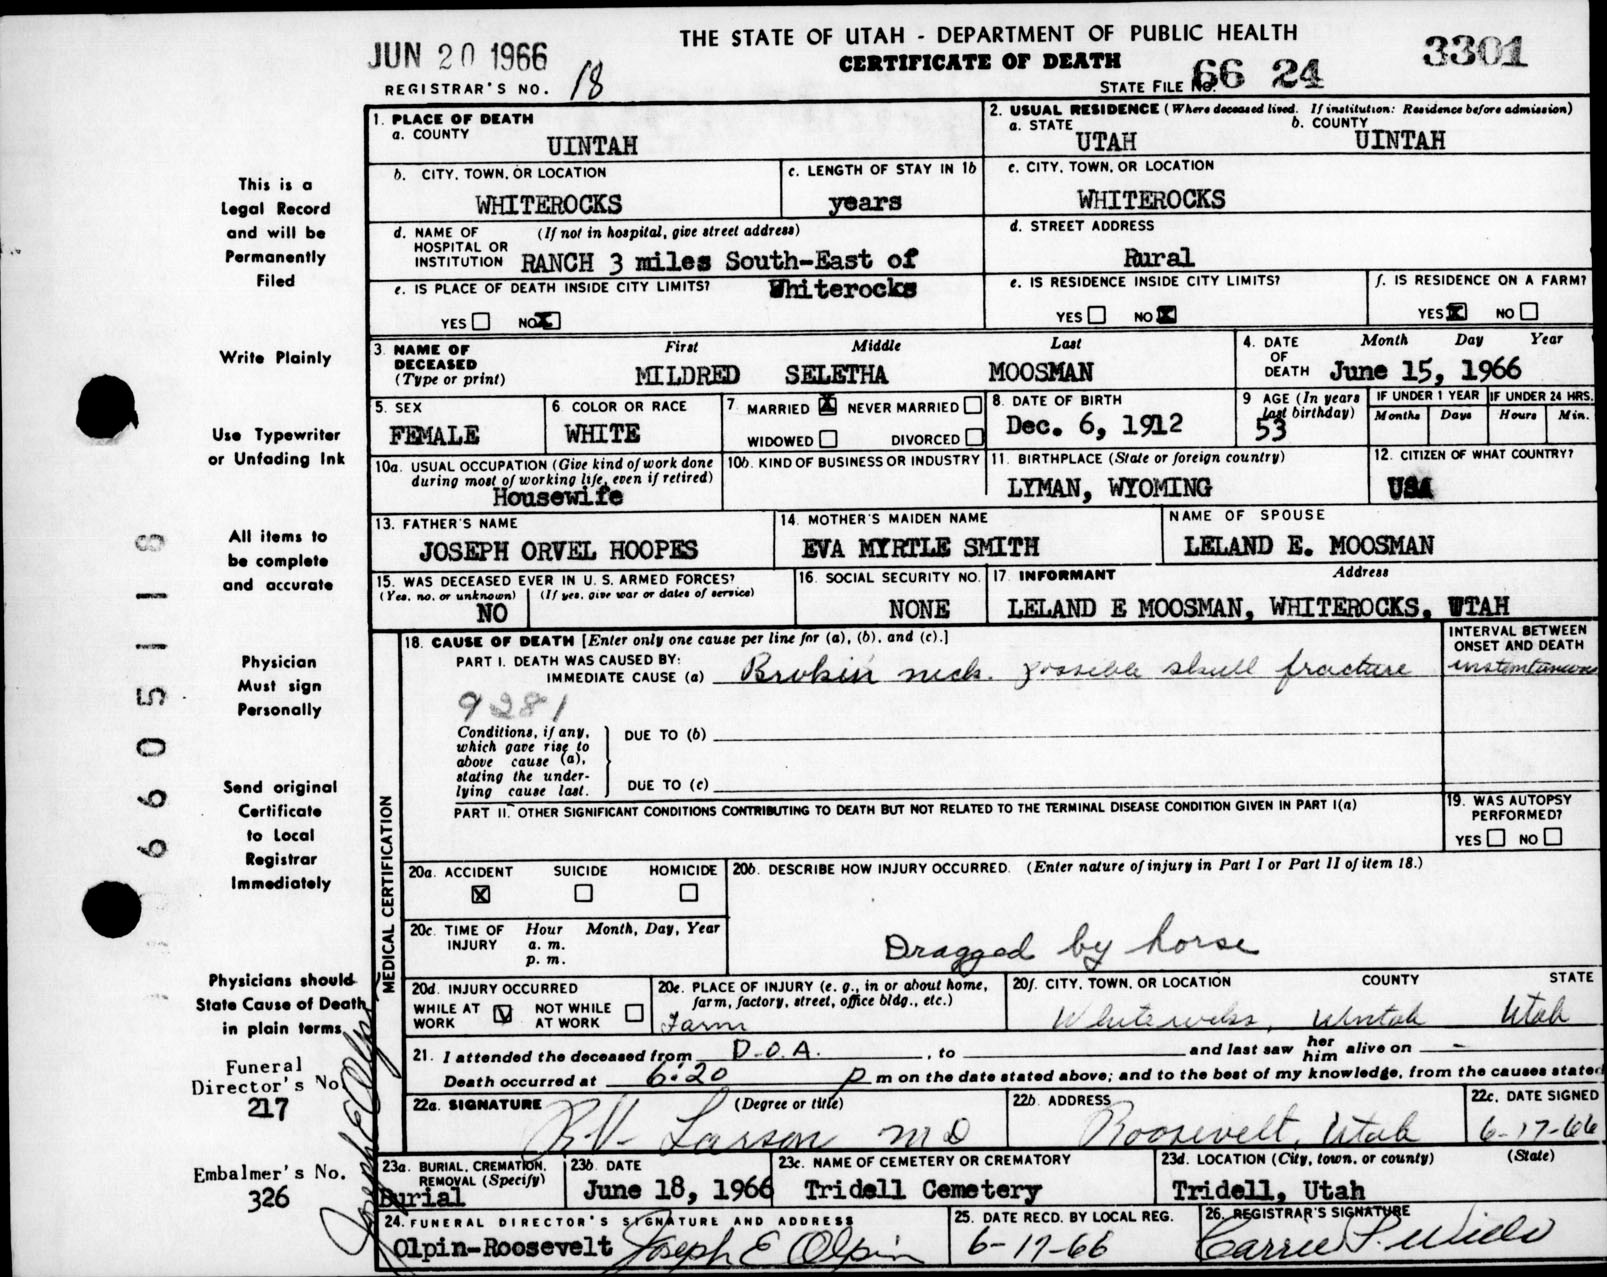 THE STATE OF UTAH - DEPARTMENT OF PUBLIC HEALTH
CERTIFICATE OF DEATH
JUN 20 1966
3301
REGISTRAR'S NO. 18
STATE FILE NO. 66 24
1. PLACE OF DEATH
a. COUNTY
UINTAH
2. USUAL RESIDENCE (Where deceased lived. If institution: Residence before admission)
a. STATE b. COUNTY
UTAH UINTAH
b. CITY, TOWN, OR LOCATION
WHITEROCKS
c. LENGTH OF STAY IN 1b
years
c. CITY, TOWN, OR LOCATION
WHITEROCKS
d. NAME OF HOSPITAL OR INSTITUTION (If not in hospital, give street address)
RANCH 3 miles South-East of
Whiterocks
d. STREET ADDRESS
Rural
e. IS PLACE OF DEATH INSIDE CITY LIMITS?
YES NO X
e. IS RESIDENCE INSIDE CITY LIMITS?
YES NO X
f. IS RESIDENCE ON A FARM?
YES X NO
3. NAME OF DECEASED (Type or print)
First Middle Last
MILDRED SELETHA MOOSMAN
4. DATE OF DEATH
Month Day Year
June 15, 1966
5. SEX
FEMALE
6. COLOR OR RACE
WHITE
7. MARRIED X NEVER MARRIED
WIDOWED DIVORCED
8. DATE OF BIRTH
Dec. 6, 1912
9. AGE (In years last birthday)
53
IF UNDER 1 YEAR
Months Days
IF UNDER 24 HRS.
Hours Min.
10a. USUAL OCCUPATION (Give kind of work done during most of working life, even if retired)
Housewife
10b. KIND OF BUSINESS OR INDUSTRY
11. BIRTHPLACE (State or foreign country)
LYMAN, WYOMING
12. CITIZEN OF WHAT COUNTRY?
USA
13. FATHER'S NAME
JOSEPH ORVEL HOOPES
14. MOTHER'S MAIDEN NAME
EVA MYRTLE SMITH
NAME OF SPOUSE
LELAND E. MOOSMAN
15. WAS DECEASED EVER IN U. S. ARMED FORCES?
(Yes, no, or unknown) (If yes, give war or dates of service)
NO
16. SOCIAL SECURITY NO.
NONE
17. INFORMANT Address
LELAND E MOOSMAN, WHITEROCKS, UTAH
MEDICAL CERTIFICATION
18. CAUSE OF DEATH [Enter only one cause per line for (a), (b), and (c).]
INTERVAL BETWEEN ONSET AND DEATH
PART I. DEATH WAS CAUSED BY:
IMMEDIATE CAUSE (a) Brokin neck. possible skull fracture
instantaneous
9281
Conditions, if any, which gave rise to above cause (a), stating the underlying cause last.
DUE TO (b)
DUE TO (c)
PART II. OTHER SIGNIFICANT CONDITIONS CONTRIBUTING TO DEATH BUT NOT RELATED TO THE TERMINAL DISEASE CONDITION GIVEN IN PART I(a)
19. WAS AUTOPSY PERFORMED?
YES NO
20a. ACCIDENT SUICIDE HOMICIDE
X
20b. DESCRIBE HOW INJURY OCCURRED. (Enter nature of injury in Part I or Part II of item 18.)
Dragged by horse
20c. TIME OF INJURY
Hour Month, Day, Year
a. m.
p. m.
20d. INJURY OCCURRED
WHILE AT WORK NOT WHILE AT WORK
20e. PLACE OF INJURY (e. g., in or about home, farm, factory, street, office bldg., etc.)
Farm
20f. CITY, TOWN, OR LOCATION COUNTY STATE
Whiterocks, Uintah Utah
21. I attended the deceased from D.O.A. , to and last saw her him alive on -
Death occurred at 6:20 p m on the date stated above; and to the best of my knowledge, from the causes stated
22a. SIGNATURE (Degree or title)
R.V. Larson MD
22b. ADDRESS
Roosevelt, Utah
22c. DATE SIGNED
6-17-66
23a. BURIAL, CREMATION, REMOVAL (Specify)
Burial
23b. DATE
June 18, 1966
23c. NAME OF CEMETERY OR CREMATORY
Tridell Cemetery
23d. LOCATION (City, town, or county) (State)
Tridell, Utah
24. FUNERAL DIRECTOR'S SIGNATURE AND ADDRESS
Olpin-Roosevelt Joseph E Olpin
25. DATE RECD. BY LOCAL REG.
6-17-66
26. REGISTRAR'S SIGNATURE
Carrie P. Wilde
This is a
Legal Record
and will be
Permanently
Filed
Write Plainly
Use Typewriter
or Unfading Ink
All items to
be complete
and accurate
Physician
Must sign
Personally
Send original
Certificate
to Local
Registrar
Immediately
Physicians should
State Cause of Death
in plain terms
Funeral
Director's No
217
Embalmer's No.
326
Joseph E Olpin
66051 18